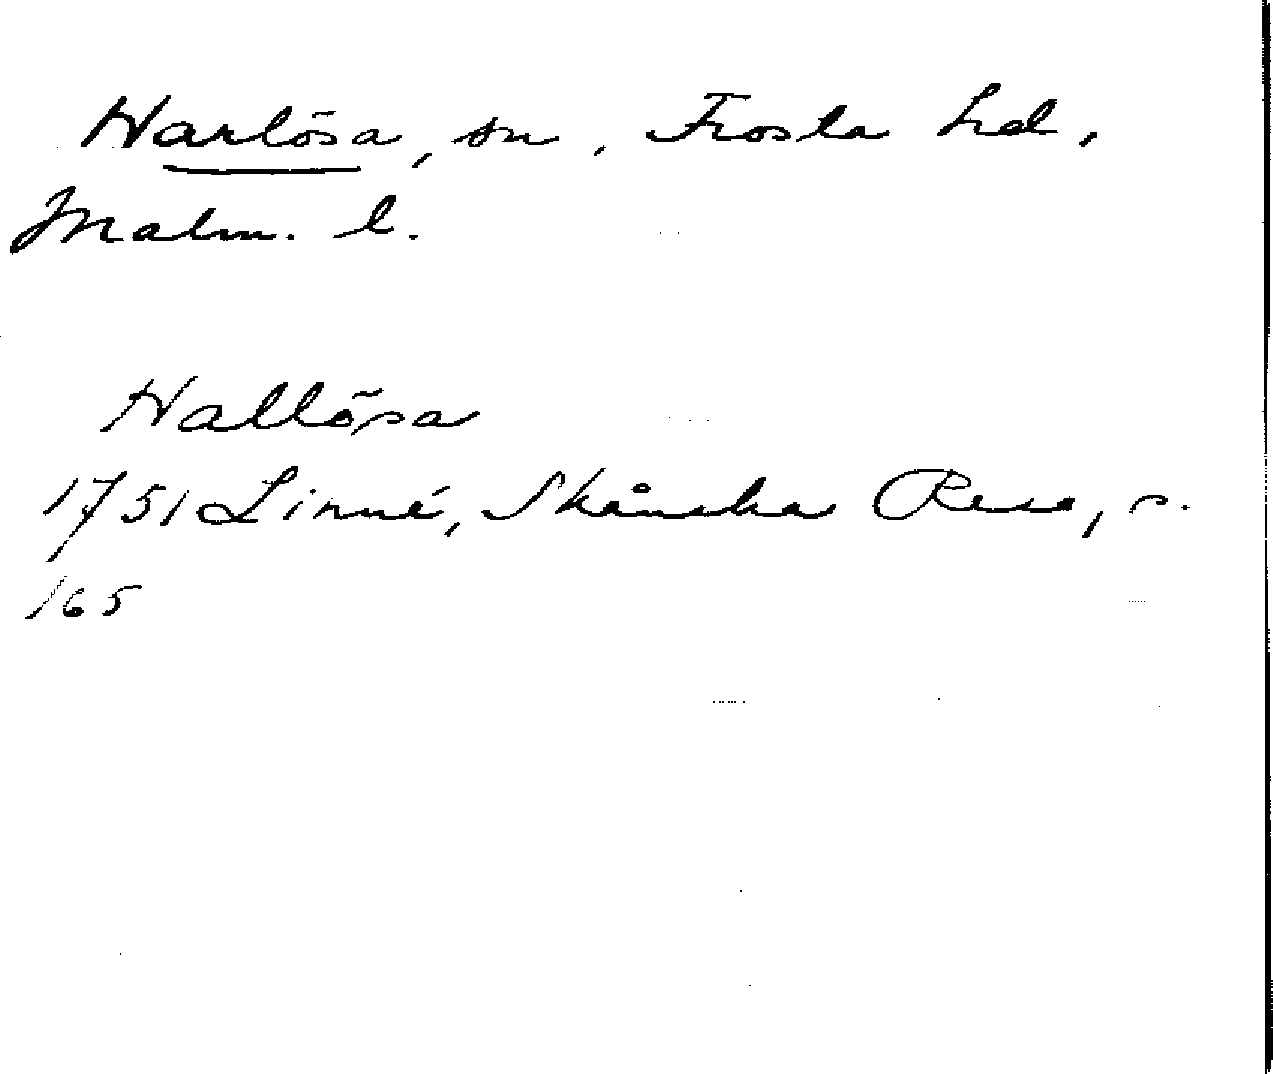 Harlösa, sn, Frosta hd,
Malm. l.
Hallösa
1751 Linné, Skånska Resa, s.
165